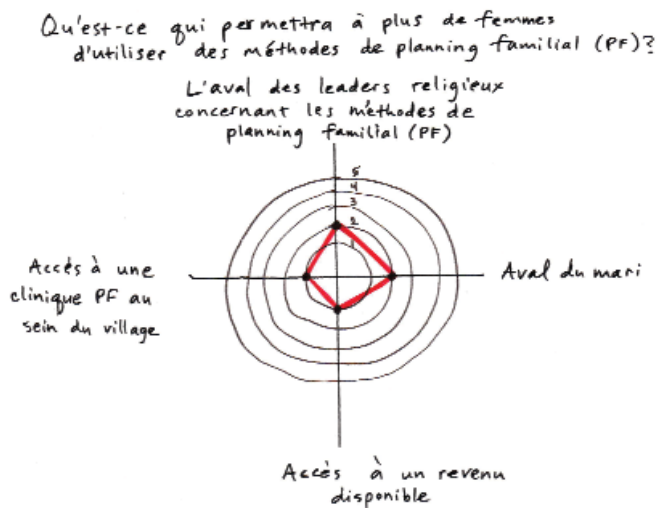 Qu'est-ce qui permettra à plus de femmes
d'utiliser des méthodes de planning familial (PF)?
L'aval des leaders religieux
concernant les méthodes de
planning familial (PF)
5
4
3
2
1
Accès à une
clinique PF au
sein du village
Aval du mari
Accès à un revenu
disponible